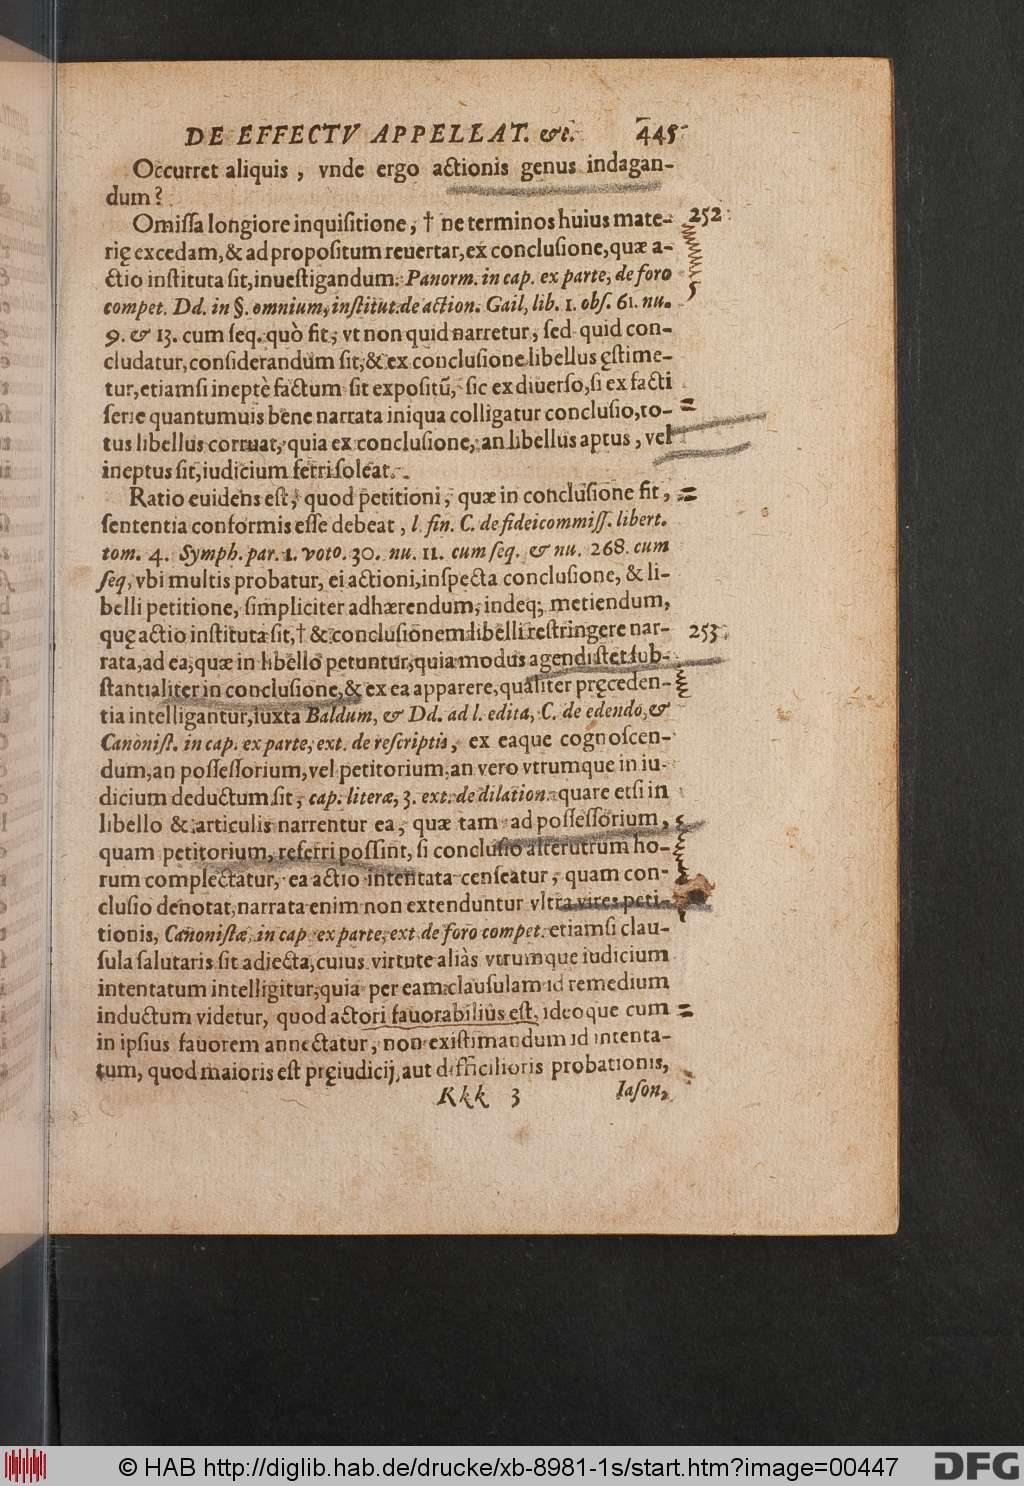 DE EFFECTV APPELLAT. &c. 445
Occurret aliquis, vnde ergo actionis genus indagan-
dum?
Omissa longiore inquisitione, † ne terminos huius mate- 252
rię excedam, & ad propositum reuertar, ex conclusione, quæ a-
ctio instituta sit, inuestigandum. Panorm. in cap. ex parte, de foro
compet. Dd. in §. omnium, institut. de action. Gail, lib. 1. obs. 61. nu.
9. & 13. cum seq. quò fit, vt non quid narretur, sed quid con-
cludatur, considerandum sit, & ex conclusione libellus ęstime-
tur, etiamsi ineptè factum sit expositū, sic ex diuerso, si ex facti
serie quantumuis bene narrata iniqua colligatur conclusio, to-
tus libellus corruat, quia ex conclusione, an libellus aptus, vel
ineptus sit, iudicium ferri soleat.
Ratio euidens est, quod petitioni, quæ in conclusione fit,
sententia conformis esse debeat, l. fin. C. de fideicommiss. libert.
tom. 4. Symph. par. 1. voto. 30. nu. 11. cum seq. & nu. 268. cum
seq, vbi multis probatur, ei actioni, inspecta conclusione, & li-
belli petitione, simpliciter adhærendum, indeq; metiendum,
quę actio instituta sit, † & conclusionem libelli restringere nar- 253
rata, ad ea, quæ in libello petuntur, quia modus agendi stet sub-
stantialiter in conclusione, & ex ea apparere, qualiter pręceden-
tia intelligantur, iuxta Baldum, & Dd. ad l. edita, C. de edendo, &
Canonist. in cap. ex parte, ext. de rescriptis, ex eaque cognoscen-
dum, an possessorium, vel petitorium, an vero vtrumque in iu-
dicium deductum sit, cap. literæ, 3. ext. de dilation. quare etsi in
libello & articulis narrentur ea, quæ tam ad possessorium,
quam petitorium, referri possint, si conclusio alterutrum ho-
rum complectatur, ea actio intentata censeatur, quam con-
clusio denotat, narrata enim non extenduntur vltra vires peti-
tionis, Canonistæ, in cap. ex parte, ext. de foro compet. etiamsi clau-
sula salutaris sit adiecta, cuius virtute aliàs vtrumque iudicium
intentatum intelligitur, quia per eam clausulam id remedium
inductum videtur, quod actori fauorabilius est, ideoque cum
in ipsius fauorem annectatur, non existimandum id intenta-
tum, quod maioris est pręiudicij, aut difficilioris probationis,
Kkk 3 Iason,
© HAB http://diglib.hab.de/drucke/xb-8981-1s/start.htm?image=00447
DFG